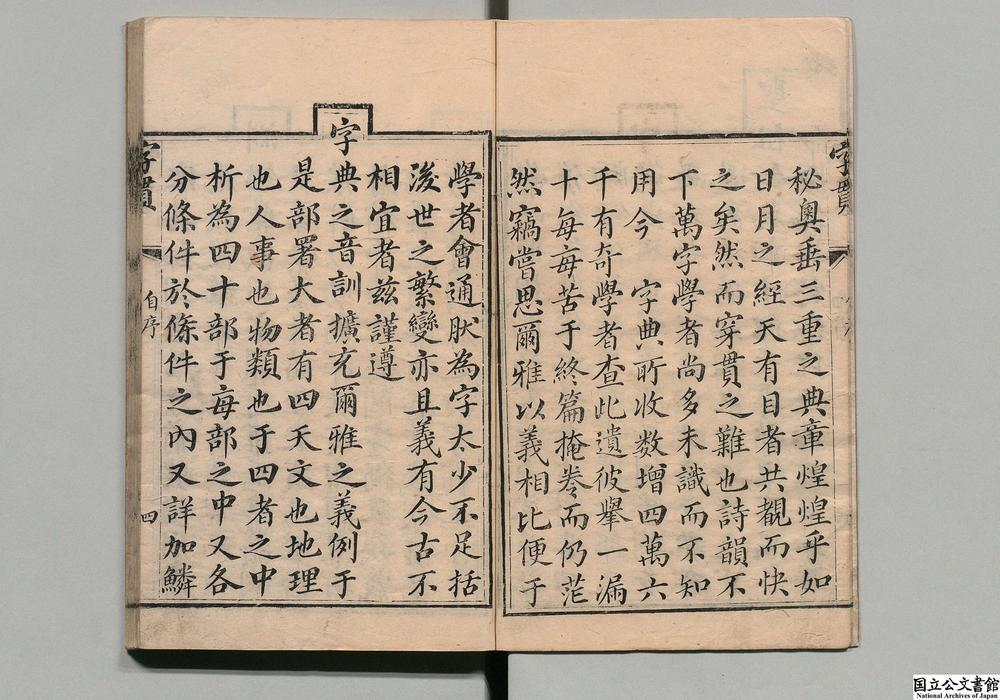 字貫
秘奧垂三重之典章煌煌乎如
日月之經天有目者共覩而快
之矣然而穿貫之難也詩韻不
下萬字學者尚多未識而不知
用今 字典所收数增四萬六
千有奇學者查此遺彼舉一漏
十每每苦于終篇掩卷而仍茫
然竊嘗思爾雅以義相比便于
學者會通肰為字太少不足括
後世之繁變亦且義有今古不
相宜者兹謹遵
字典之音訓擴充爾雅之義例于
是部署大者有四天文也地理
也人事也物類也于四者之中
析為四十部于每部之中又各
分條件於條件之內又詳加鱗
字貫
自序
四
国立公文書館
National Archives of Japan